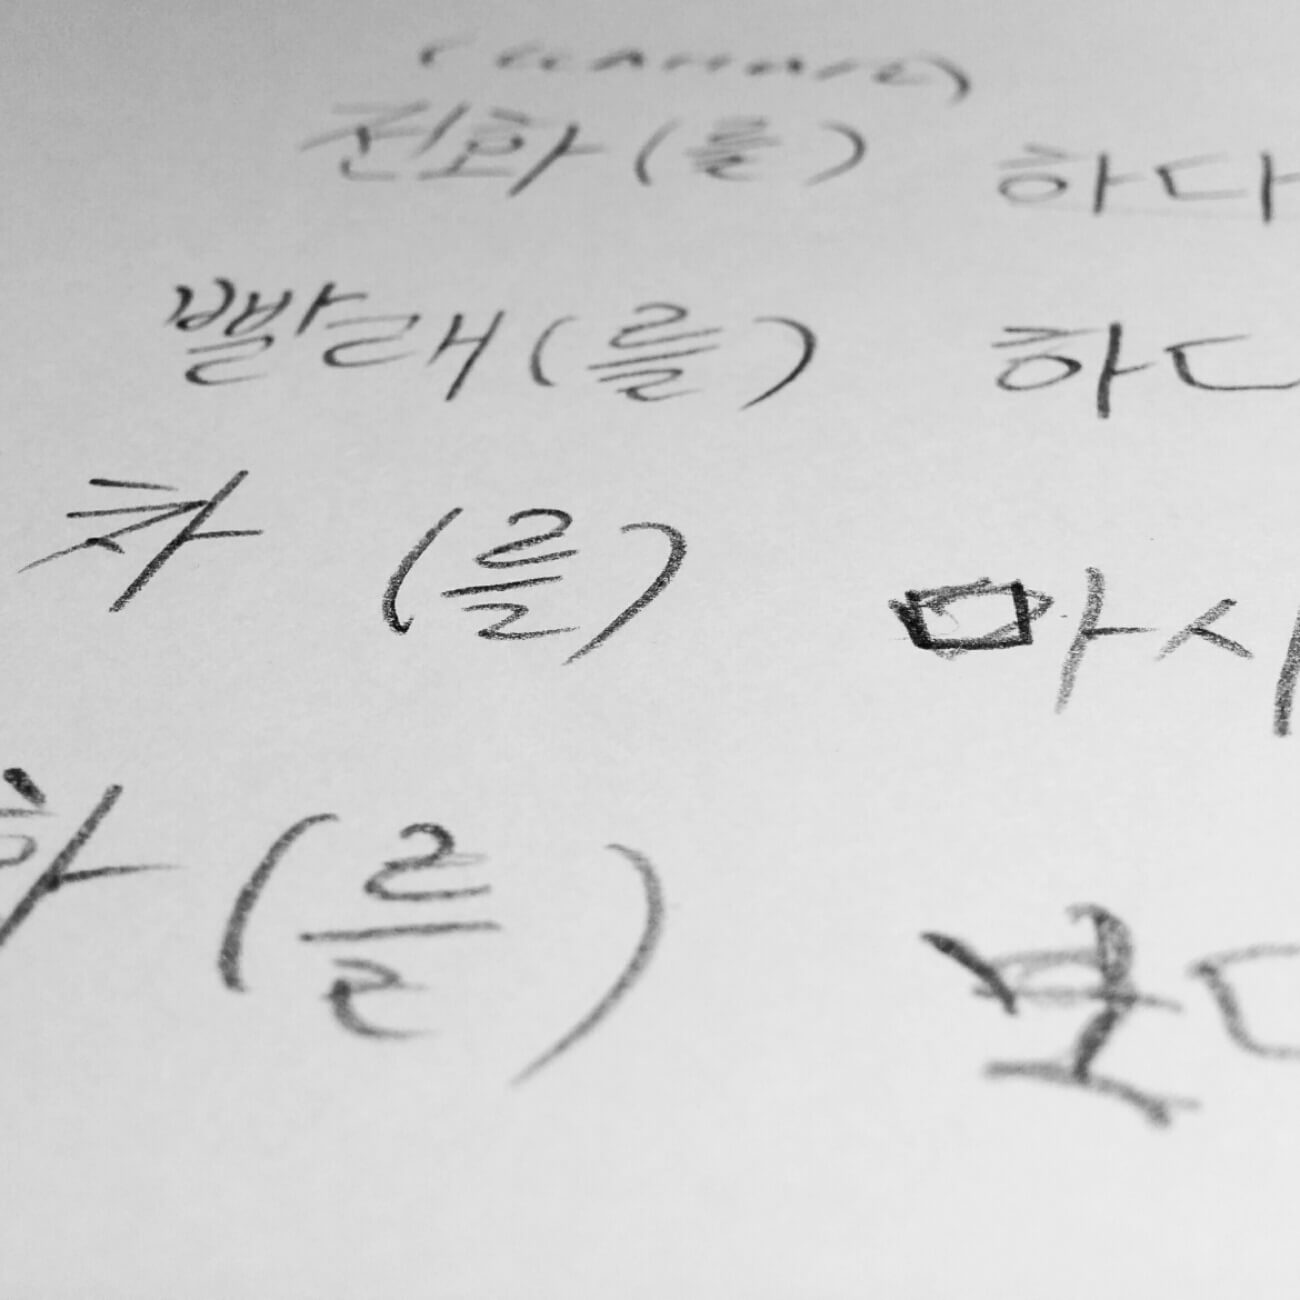 전화(를) 하다
빨래(를) 하다
차 (를) 마시
화(를) 보다